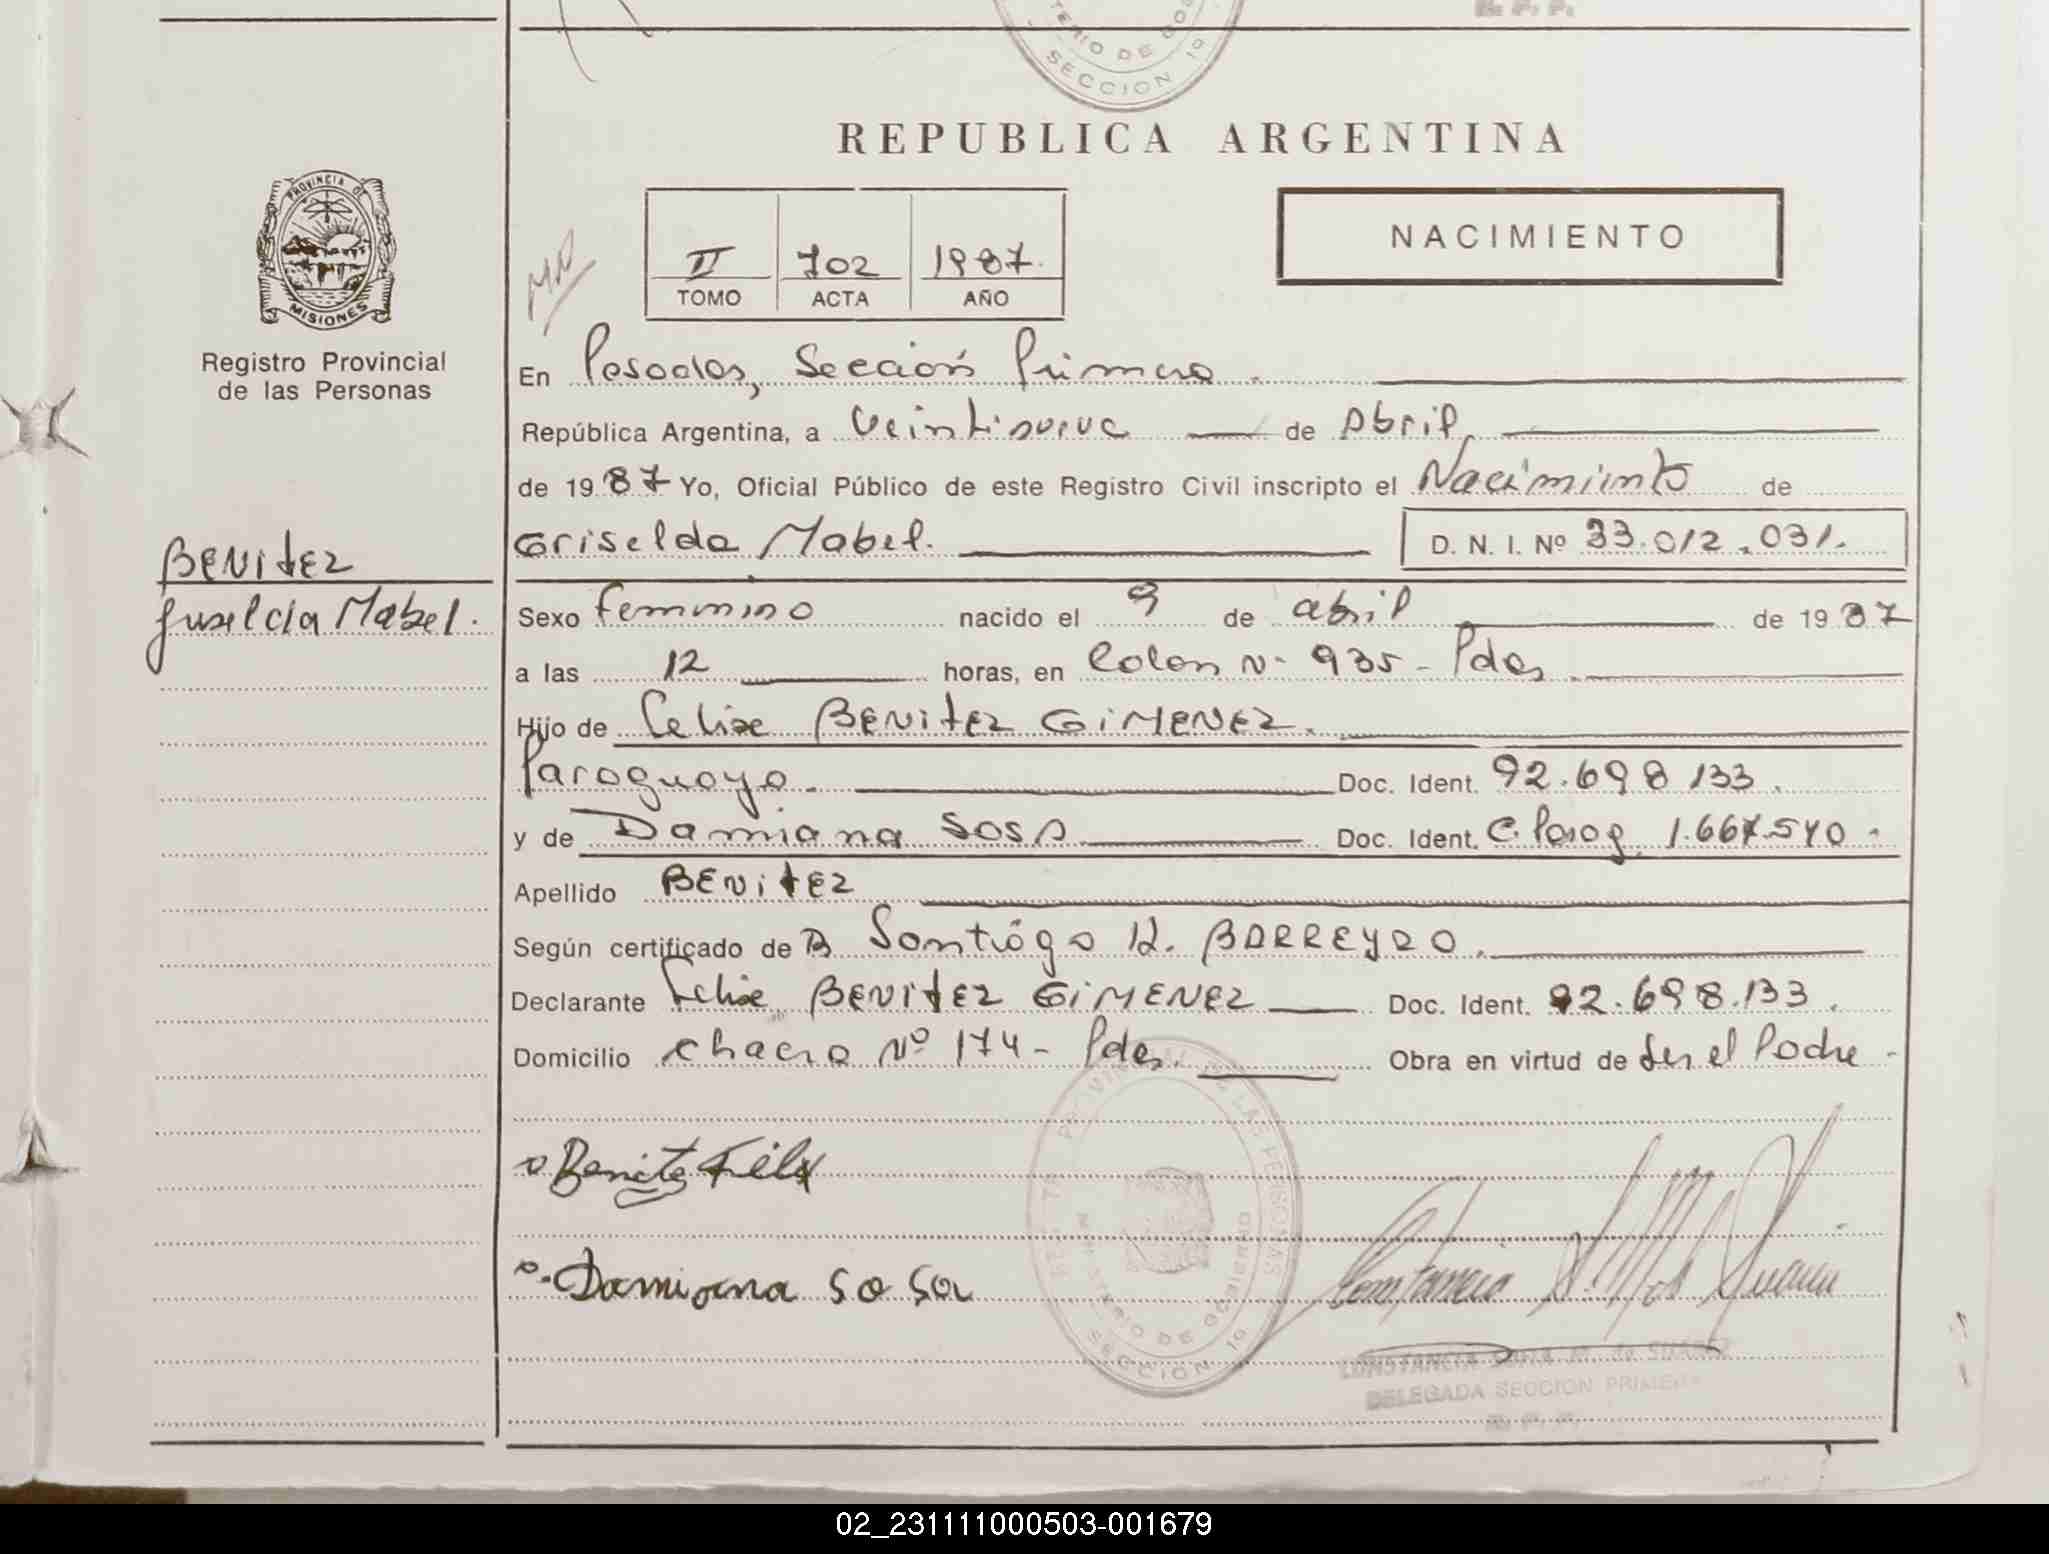 R. P. P.
MINISTERIO DE GOBIERNO
SECCION 1º
REPUBLICA ARGENTINA
PROVINCIA DE
MISIONES
Registro Provincial
de las Personas
II 702 1987.
TOMO ACTA AÑO
NACIMIENTO
En Posadas, Sección Primera.
República Argentina, a veintinueve de Abril,
de 1987 Yo, Oficial Público de este Registro Civil inscripto el Nacimiento de
Griselda Mabel. D. N. I. Nº 33.012.031.
BENITEZ
Griselda Mabel.
Sexo femenino nacido el 9 de abril de 1987
a las 12 horas, en Colon Nº 935 - Pdas
Hijo de Felix BENITEZ GIMENEZ.
Paraguayo. Doc. Ident. 92.698.133.
y de Damiana SOSA Doc. Ident. C. Parag. 1.667.540.
Apellido BENITEZ
Según certificado de B Santiago H. BARREYRO.
Declarante Felix BENITEZ GIMENEZ Doc. Ident. 92.698.133.
Domicilio chacra Nº 174 - Pdas. Obra en virtud de ser el Padre -
Benitez Félix
Damiana Sosa
PROVINCIAL DE LAS PERSONAS
MINISTERIO DE GOBIERNO
SECCION 1º
CONSTANCIA de SUAREZ
DELEGADA SECCION PRIMERA
R. P. P.
02_231111000503-001679